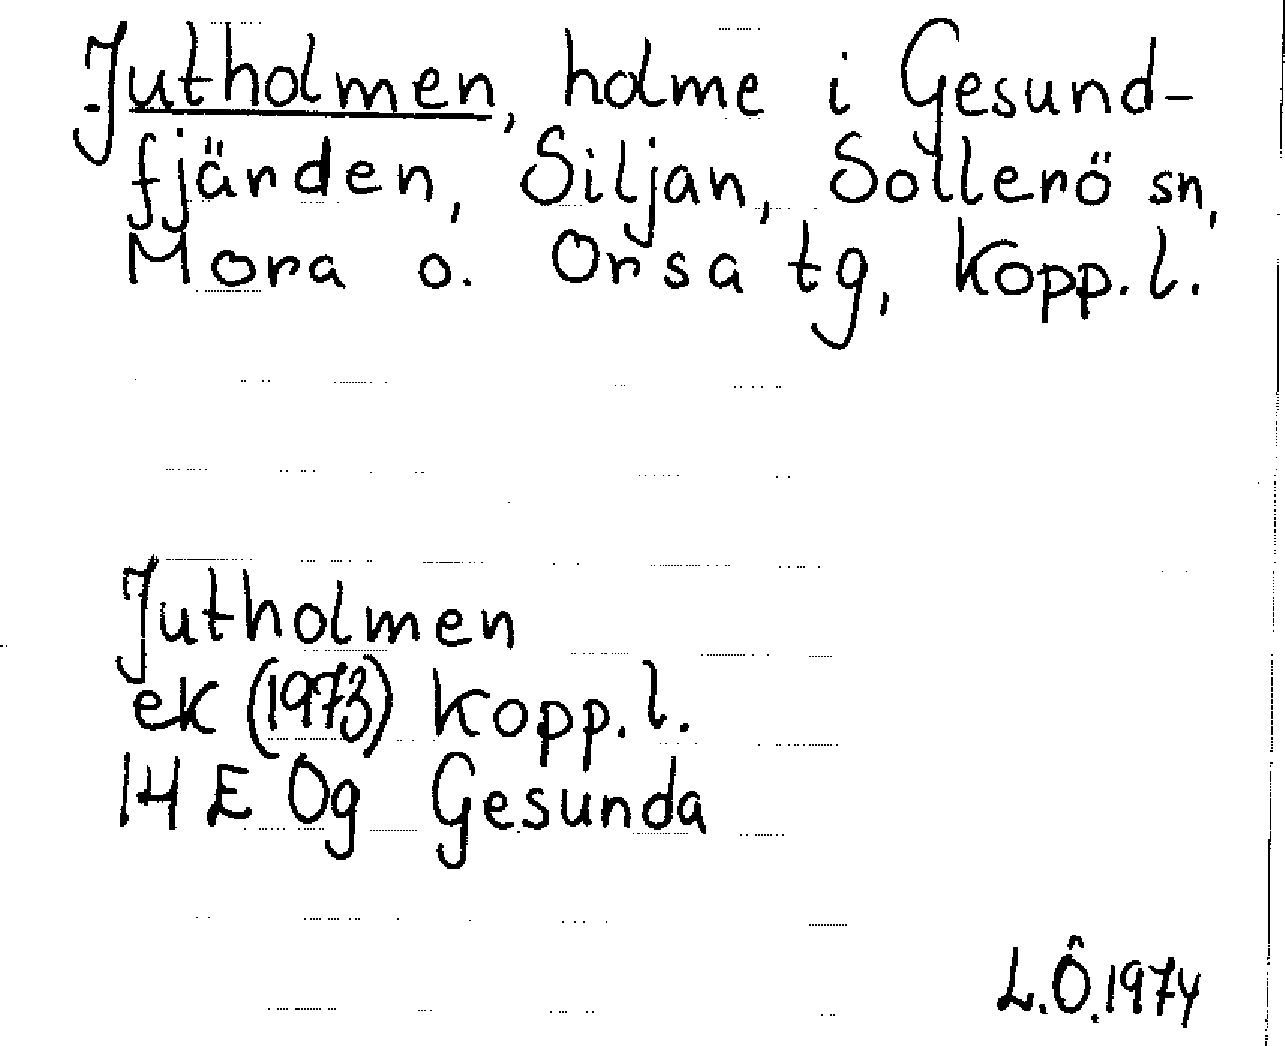 Jutholmen, holme i Gesund-
fjärden, Siljan, Sollerö sn,
Mora o. Orsa tg, Kopp. l.
Jutholmen
ek (1973) Kopp. l.
14 E 0g Gesunda
L.Ö.1974